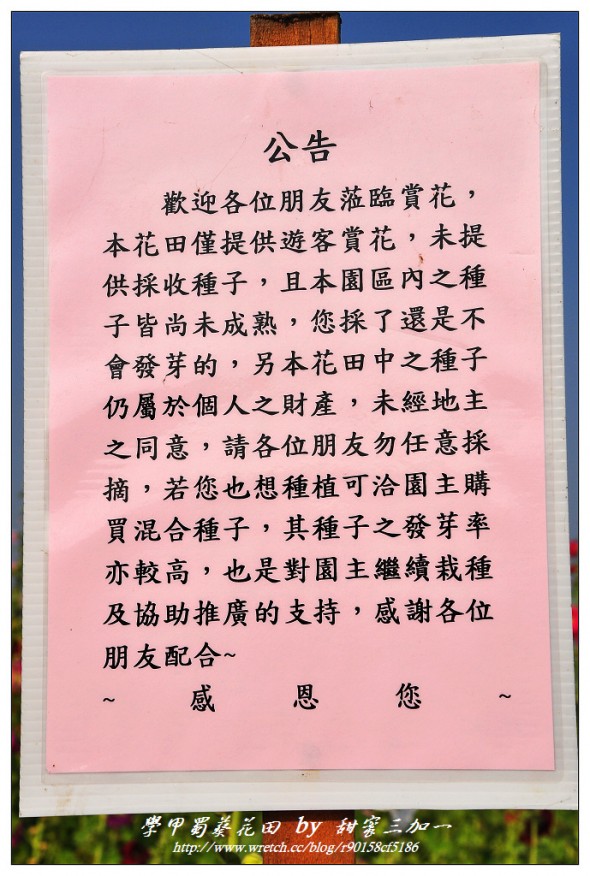 公告
歡迎各位朋友蒞臨賞花，
本花田僅提供遊客賞花，未提
供採收種子，且本園區內之種
子皆尚未成熟，您採了還是不
會發芽的，另本花田中之種子
仍屬於個人之財產，未經地主
之同意，請各位朋友勿任意採
摘，若您也想種植可洽園主購
買混合種子，其種子之發芽率
亦較高，也是對園主繼續栽種
及協助推廣的支持，感謝各位
朋友配合~
~ 感 恩 您 ~
學甲蜀葵花田 by 甜蜜三加一
http://www.wretch.cc/blog/r90158cf5186